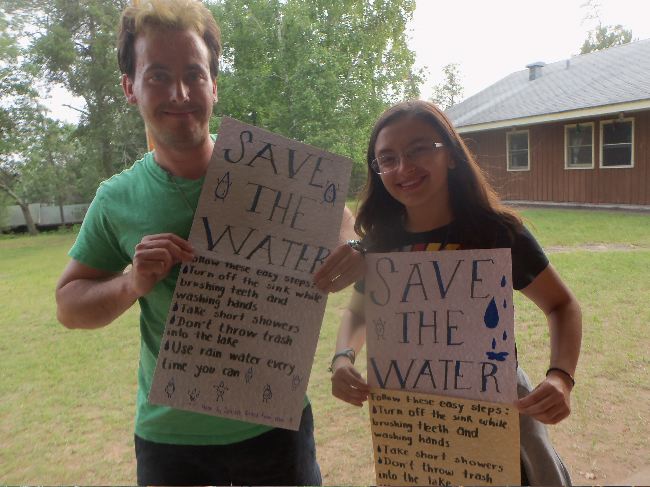 SAVE
THE
WATER
Follow these easy steps:
Turn off the sink while
brushing teeth and
washing hands
Take short showers
Don't throw trash
into the lake
Use rain water every
time you can
SAVE
THE
WATER
Follow these easy steps:
Turn off the sink while
brushing teeth and
washing hands
Take short showers
Don't throw trash
into the lake